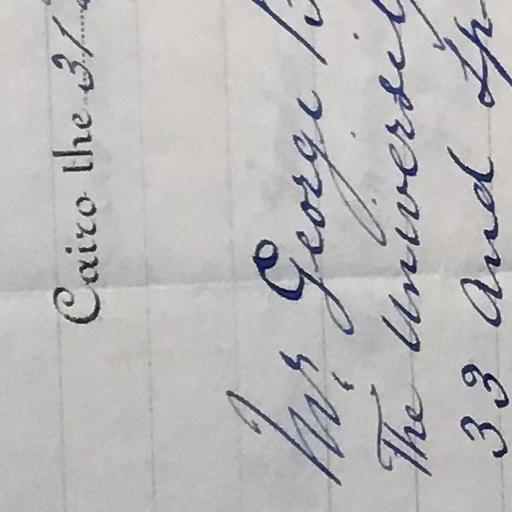 Cairo the 31
Mr. George B
The University
33 and Sp